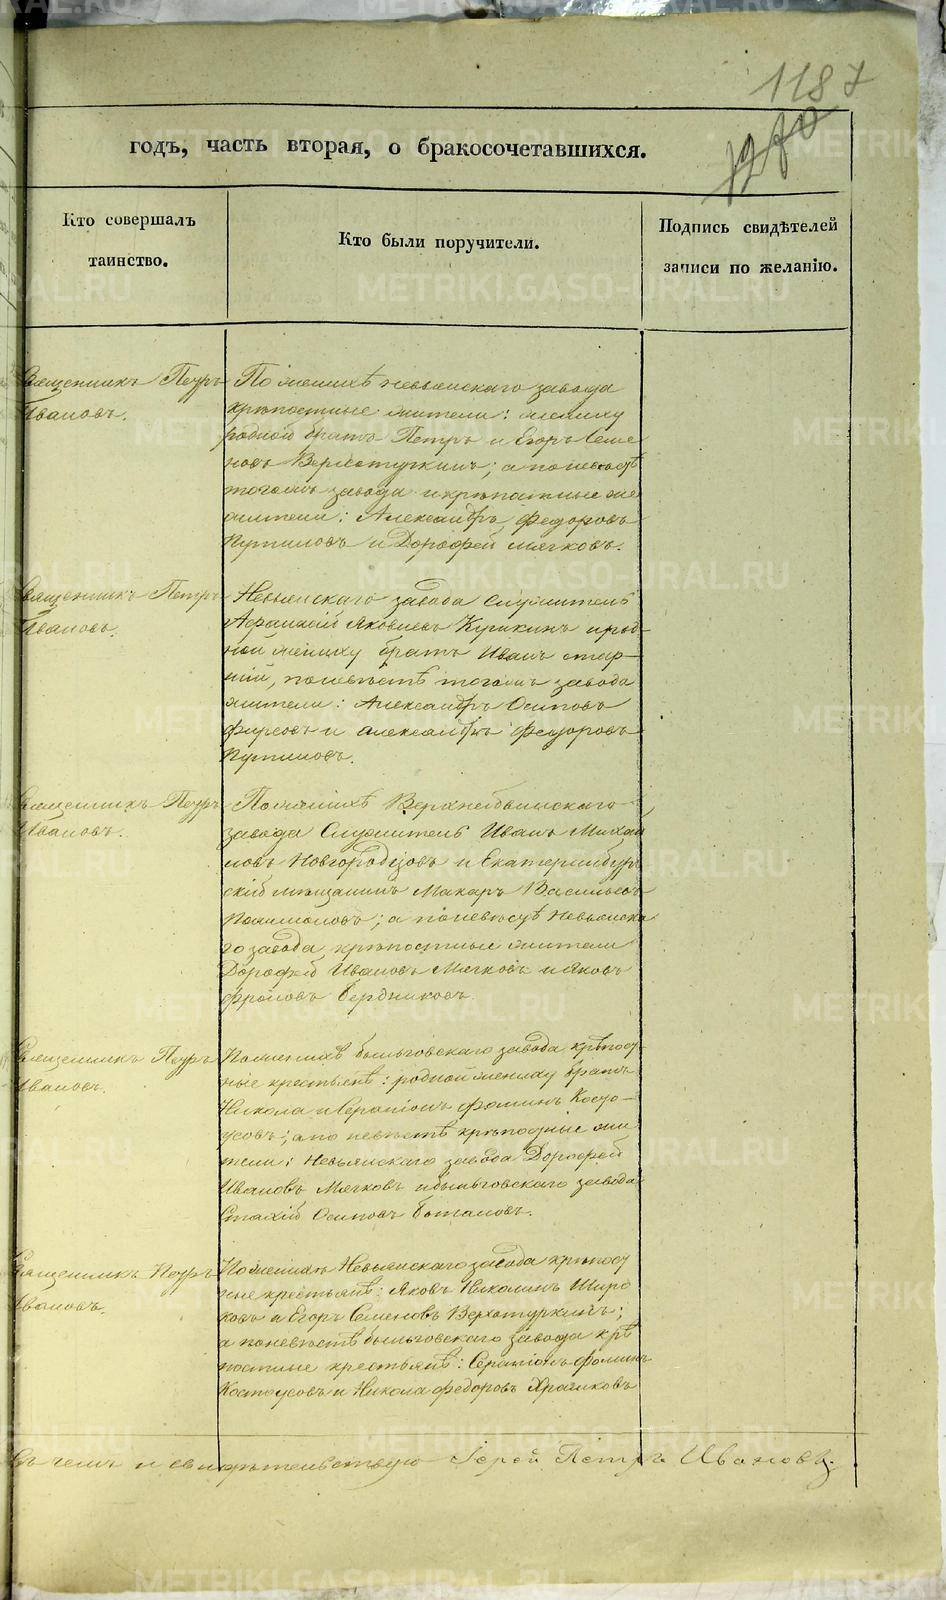 1187
1270
годъ, часть вторая, о бракосочетавшихся.
Кто совершалъ
таинство.
Кто были поручители.
Подпись свидѣтелей
записи по желанію.
Священникъ Петръ
Ивановъ.
По женихѣ Невьянскаго завода
крѣпостные жители: жениху
родной братъ Петръ и Егоръ Семе
новъ Верхотуркинъ; а по невѣстѣ
тогожъ завода и крѣпостные жи
жители: Александръ Федоровъ
Путиловъ и Дорофей Мячковъ.
Священникъ Петръ
Ивановъ.
Невьянскаго завода Служитель
Яковлевъ и род
ной жениху братъ Иванъ стар
шій, по невѣстѣ тогожъ завода
жители: Александръ Осиповъ
Фирсовъ и Александръ Федоровъ
Путиловъ.
Священникъ Петръ
Ивановъ.
По женихѣ Верхнейвинскаго
завода Служитель Иванъ Михай
ловъ Новгородцовъ и Екатеринбур
скій мѣщанинъ Макаръ Васильевъ
; а по невѣстѣ Невьянска
го завода крѣпостные жители
Дорофей Ивановъ Мячковъ и Яковъ
Фроловъ Бердниковъ.
Священникъ Петръ
Ивановъ.
По женихѣ Быньговскаго завода крѣпост
ные крестьянѣ: родной жениху братъ
Никола и Серапіонъ Фоминъ Косто
усовъ; а по невѣстѣ крѣпостные жи
тели: Невьянскаго завода Дорофей
Ивановъ Мячковъ и Быньговскаго завода
Стахій Осиповъ
Священникъ Петръ
Ивановъ.
По женихѣ Невьянскаго завода крѣпост
ные крестьянѣ: Яковъ Николинъ Широ
ковъ и Егоръ Семеновъ Верхотуркинъ;
а по невѣстѣ Быньговскаго завода крѣ
постные крестьянѣ: Серапіонъ Фоминъ
Костоусовъ и Никола Федоровъ Храмковъ
Въ чемъ и свидѣтельствую Іерей Петръ Ивановъ.
METRIKI.GASO-URAL.RU